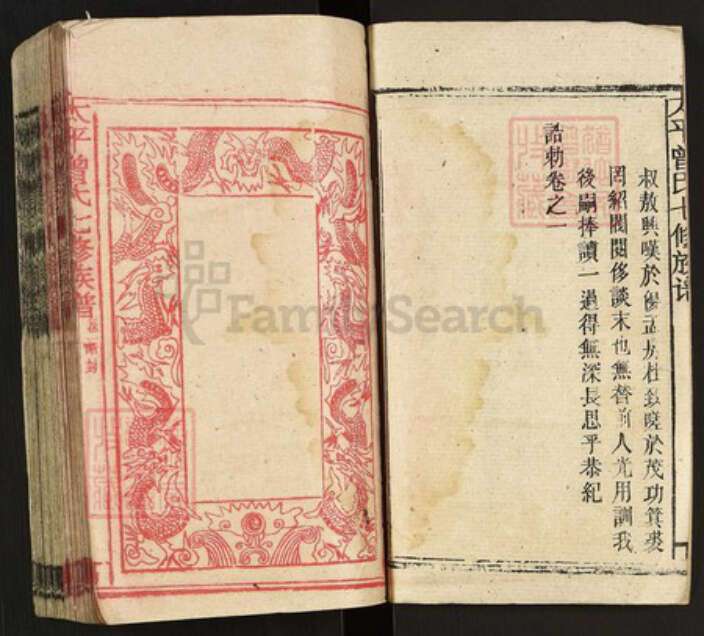 太平曾氏七修族谱
叔敖興嘆於優孟
於茂功箕裘
罔紹閥閱侈談末也無替前人光用訓我
後嗣捧讀一過得無深長思乎恭紀
誥勅卷之一
太平曾氏七修族譜
卷
誥封
FamilySearch